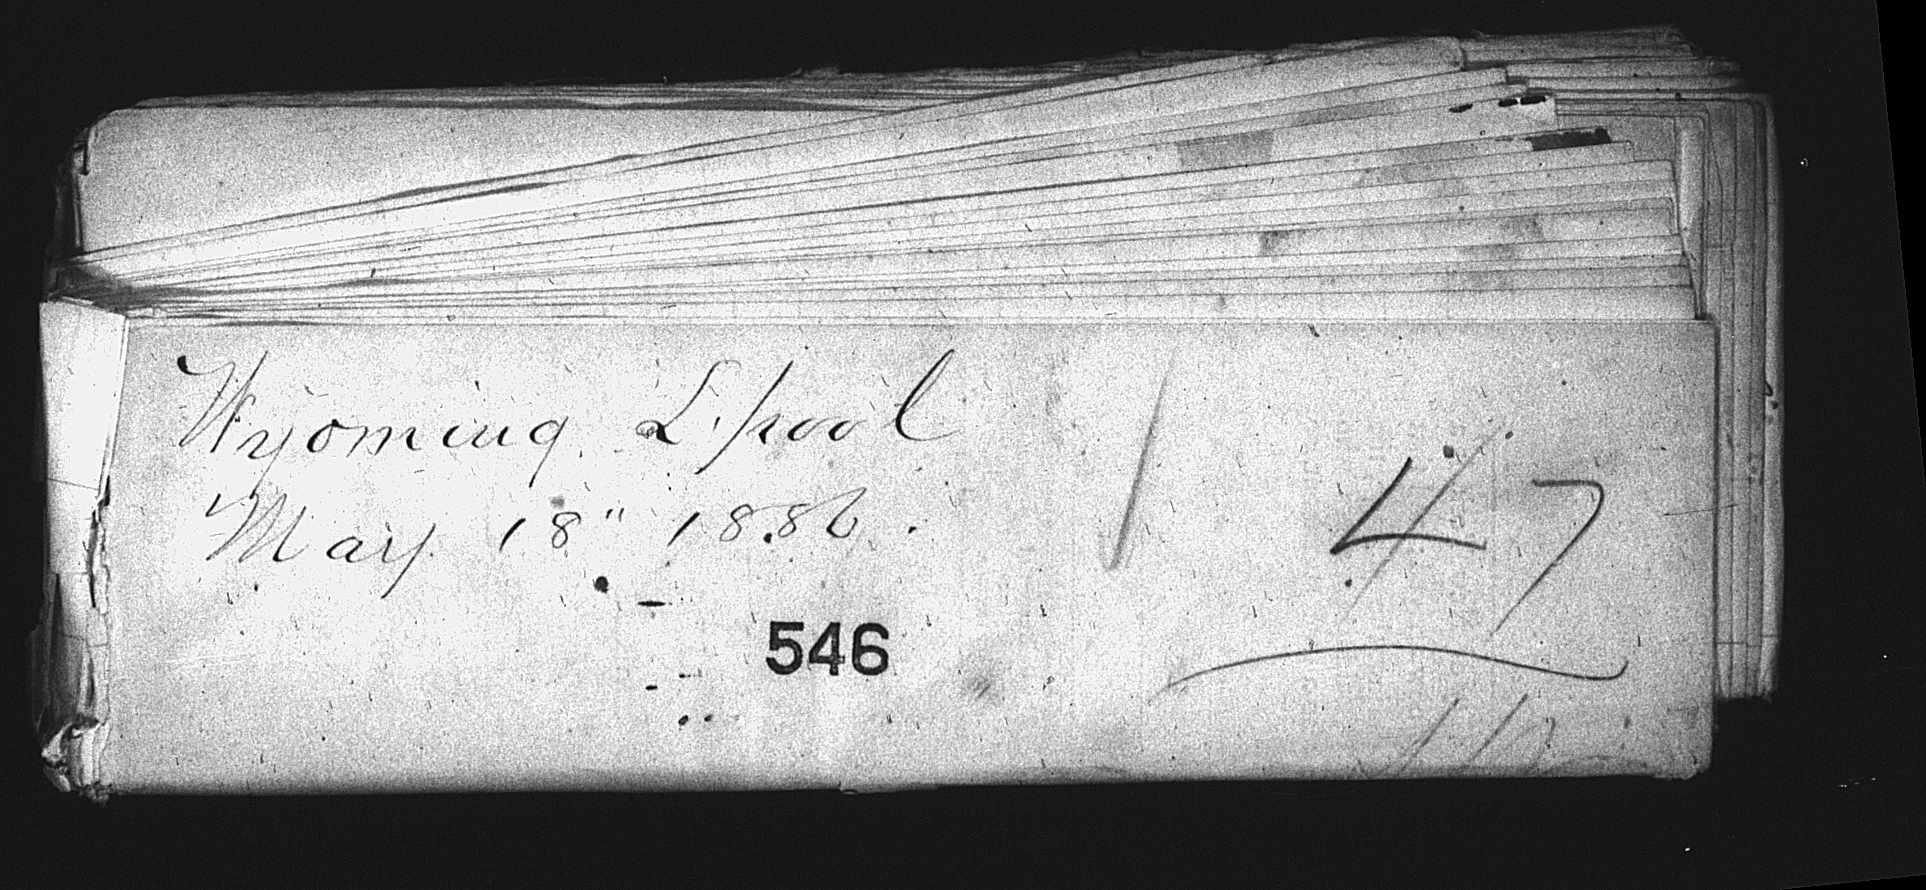 Wyoming L'pool
May 18" 1886.
47
546